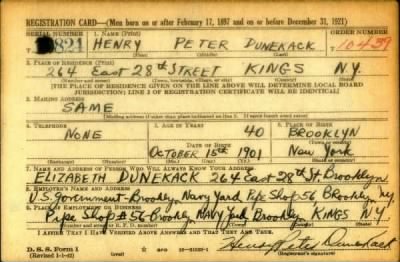 REGISTRATION CARD—(Men born on or after February 17, 1897 and on or before December 31, 1921)
SERIAL NUMBER 1. NAME (Print) ORDER NUMBER
824 HENRY PETER DUNEKACK 10439
(First) (Middle) (Last)
2. PLACE OF RESIDENCE (Print)
264 East 28th STREET KINGS N.Y.
(Number and street) (Town, township, village, or city) (County) (State)
[THE PLACE OF RESIDENCE GIVEN ON THE LINE ABOVE WILL DETERMINE LOCAL BOARD
JURISDICTION; LINE 2 OF REGISTRATION CERTIFICATE WILL BE IDENTICAL]
3. MAILING ADDRESS
SAME
[Mailing address if other than place indicated on line 2. If same insert word same]
4. TELEPHONE 5. AGE IN YEARS 6. PLACE OF BIRTH
NONE 40 BROOKLYN
DATE OF BIRTH
OCTOBER 15th 1901 New York
7. NAME AND ADDRESS OF PERSON WHO WILL ALWAYS KNOW YOUR ADDRESS
ELIZABETH DUNEKACK 264 East 28th St. Brooklyn
8. EMPLOYER'S NAME AND ADDRESS
U.S. Government-Brooklyn Navy Yard Pipe Shop 56, Brooklyn, NY.
9. PLACE OF EMPLOYMENT OR BUSINESS
Pipe Shop #56 Brooklyn NAVY Yard Brooklyn KINGS N.Y.
I AFFIRM THAT I HAVE VERIFIED ABOVE ANSWERS AND THAT THEY ARE TRUE.
D. S. S. Form 1
(Revised 1-1-42) (over) Henry Peter Dunekack
(Registrant's signature)